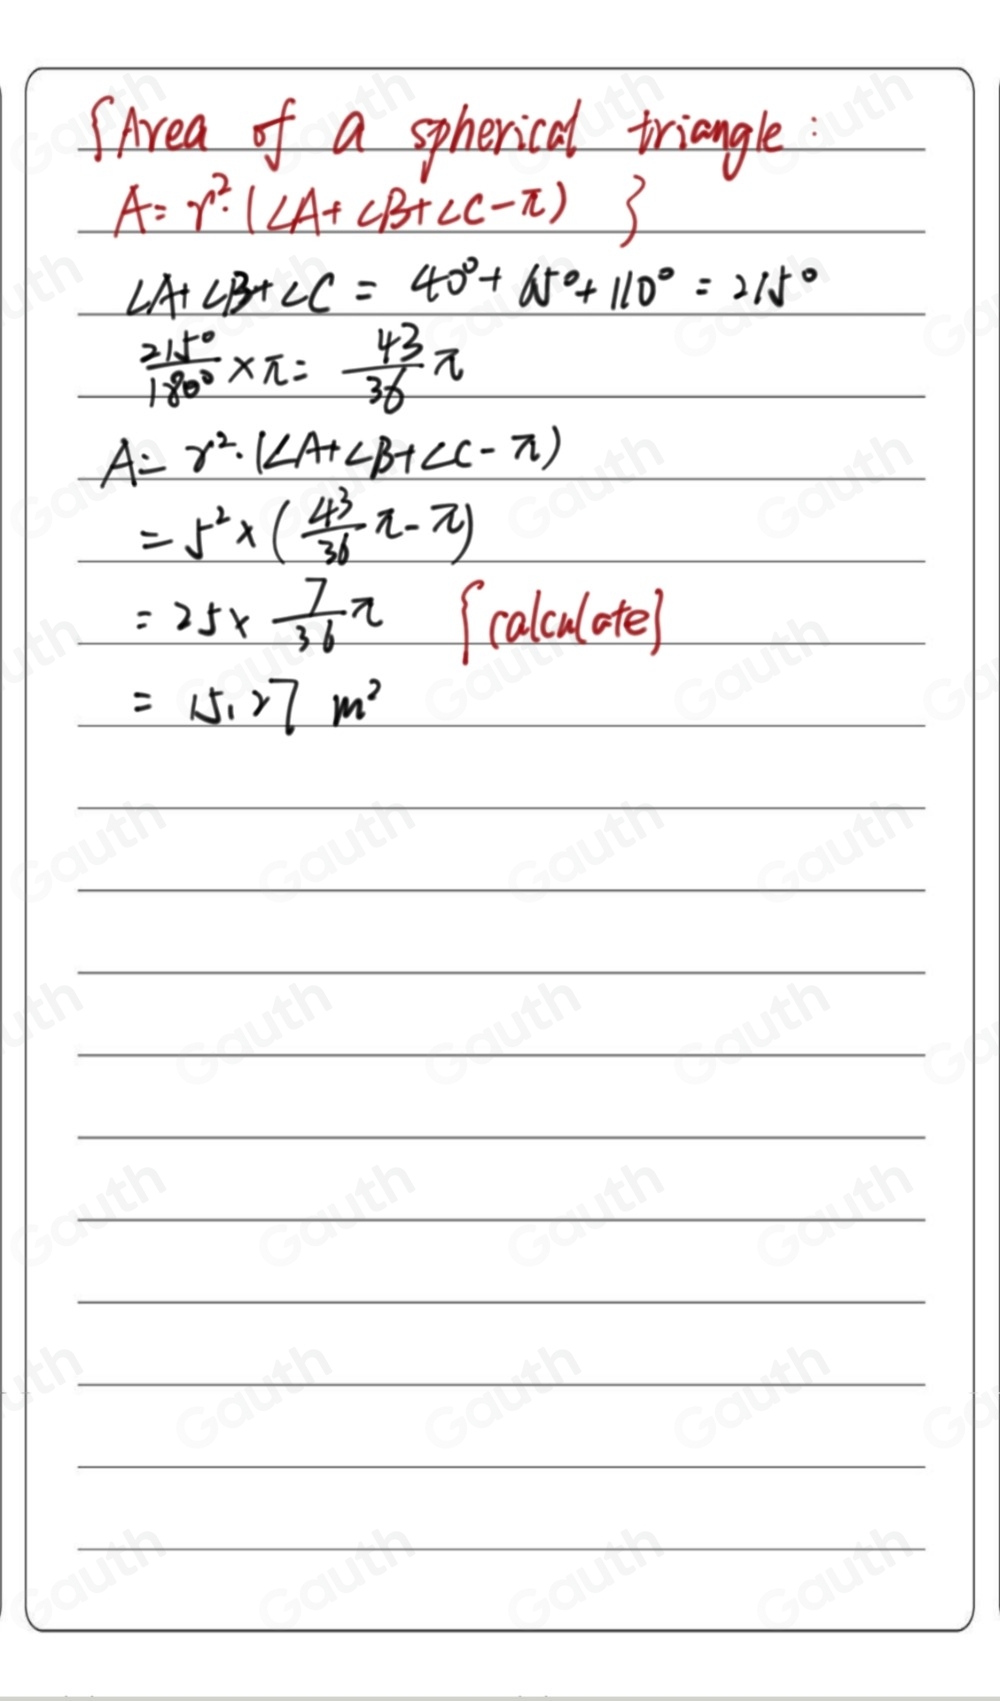 {Area of a spherical triangle:
A = r²·(∠A+∠B+∠C-π) }
∠A+∠B+∠C = 40°+65°+110° = 215°
215°/180° × π = 43/36 π
A = r²·(∠A+∠B+∠C-π)
= 5² × (43/36 π - π)
= 25 × 7/36 π {calculate}
= 15.27 m²